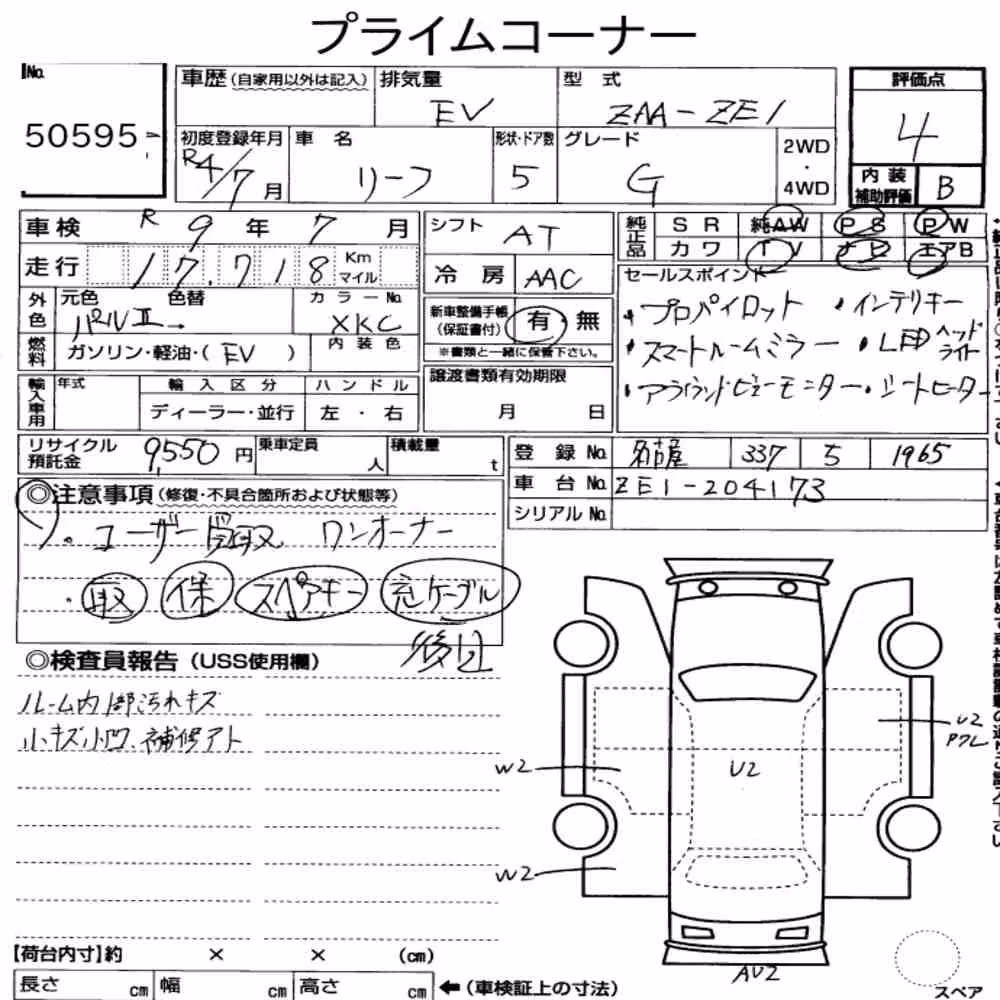 プライムコーナー
No.
50595
車歴(自家用以外は記入)
排気量
EV
型 式
ZAA-ZE1
評価点
4
初度登録年月
R4/7月
車 名
リーフ
形状・ドア数
5
グレード
G
2WD
・
4WD
内装
補助評価
B
車検 R 9年 7月
シフト
AT
純正品
SR 純AW PS PW
カワ TV ナビ エアB
走行 17,718 Km
マイル
冷房
AAC
外色
元色 色替
パールⅡ
カラーNo.
XKC
新車整備手帳
(保証書付)
有・無
※書類と一緒に保管下さい。
セールスポイント
・プロパイロット ・インテリキー
・スマートルームミラー ・LEDヘッドライト
・アラウンドビューモニター・シートヒーター
燃料
ガソリン・軽油・(EV)
内装色
輸入車用
年式
輸入区分
ディーラー・並行
ハンドル
左・右
譲渡書類有効期限
月 日
リサイクル
預託金
9,550円
乗車定員
人
積載量
t
登録No. 名古屋 337 5 1965
車台No. ZE1-204173
シリアルNo.
◎注意事項(修復・不具合箇所および状態等)
・ユーザー買取 ワンオーナー
・取 保 スペアキー 充ケーブル
後日
◎検査員報告(USS使用欄)
ルーム内部汚れキズ
小キズ小凹、補修アト
U2
W2
U2
W2
AU2
【荷台内寸】約 × × (cm)
長さ cm 幅 cm 高さ cm ←(車検証上の寸法)
スペア